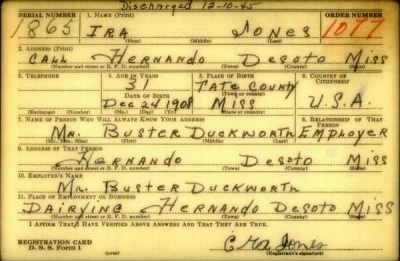 Discharged 12-10-45
SERIAL NUMBER 1. NAME (Print) ORDER NUMBER
1865 IRA JONES 1077
(First) (Middle) (Last)
2. ADDRESS (Print)
CALL HERNANDO DESOTO MISS
(Number and street or R. F. D. number) (Town) (County) (State)
3. TELEPHONE 4. AGE IN YEARS 5. PLACE OF BIRTH 6. COUNTRY OF CITIZENSHIP
31 TATE COUNTY
DATE OF BIRTH (Town or county)
Dec 24 1908 MISS U.S.A.
(Exchange) (Number) (Mo.) (Day) (Yr.) (State or country)
7. NAME OF PERSON WHO WILL ALWAYS KNOW YOUR ADDRESS 8. RELATIONSHIP OF THAT PERSON
MR. BUSTER DUCKWORTH EMPLOYER
(Mr., Mrs., Miss) (First) (Middle) (Last)
9. ADDRESS OF THAT PERSON
HERNANDO DESOTO MISS
(Number and street or R. F. D. number) (Town) (County) (State)
10. EMPLOYER'S NAME
MR. BUSTER DUCKWORTH
11. PLACE OF EMPLOYMENT OR BUSINESS
DAIRYING HERNANDO DESOTO MISS
(Number and street or R. F. D. number) (Town) (County) (State)
I AFFIRM THAT I HAVE VERIFIED ABOVE ANSWERS AND THAT THEY ARE TRUE.
REGISTRATION CARD
D. S. S. Form 1 (over) Ira Jones
(Registrant's signature)